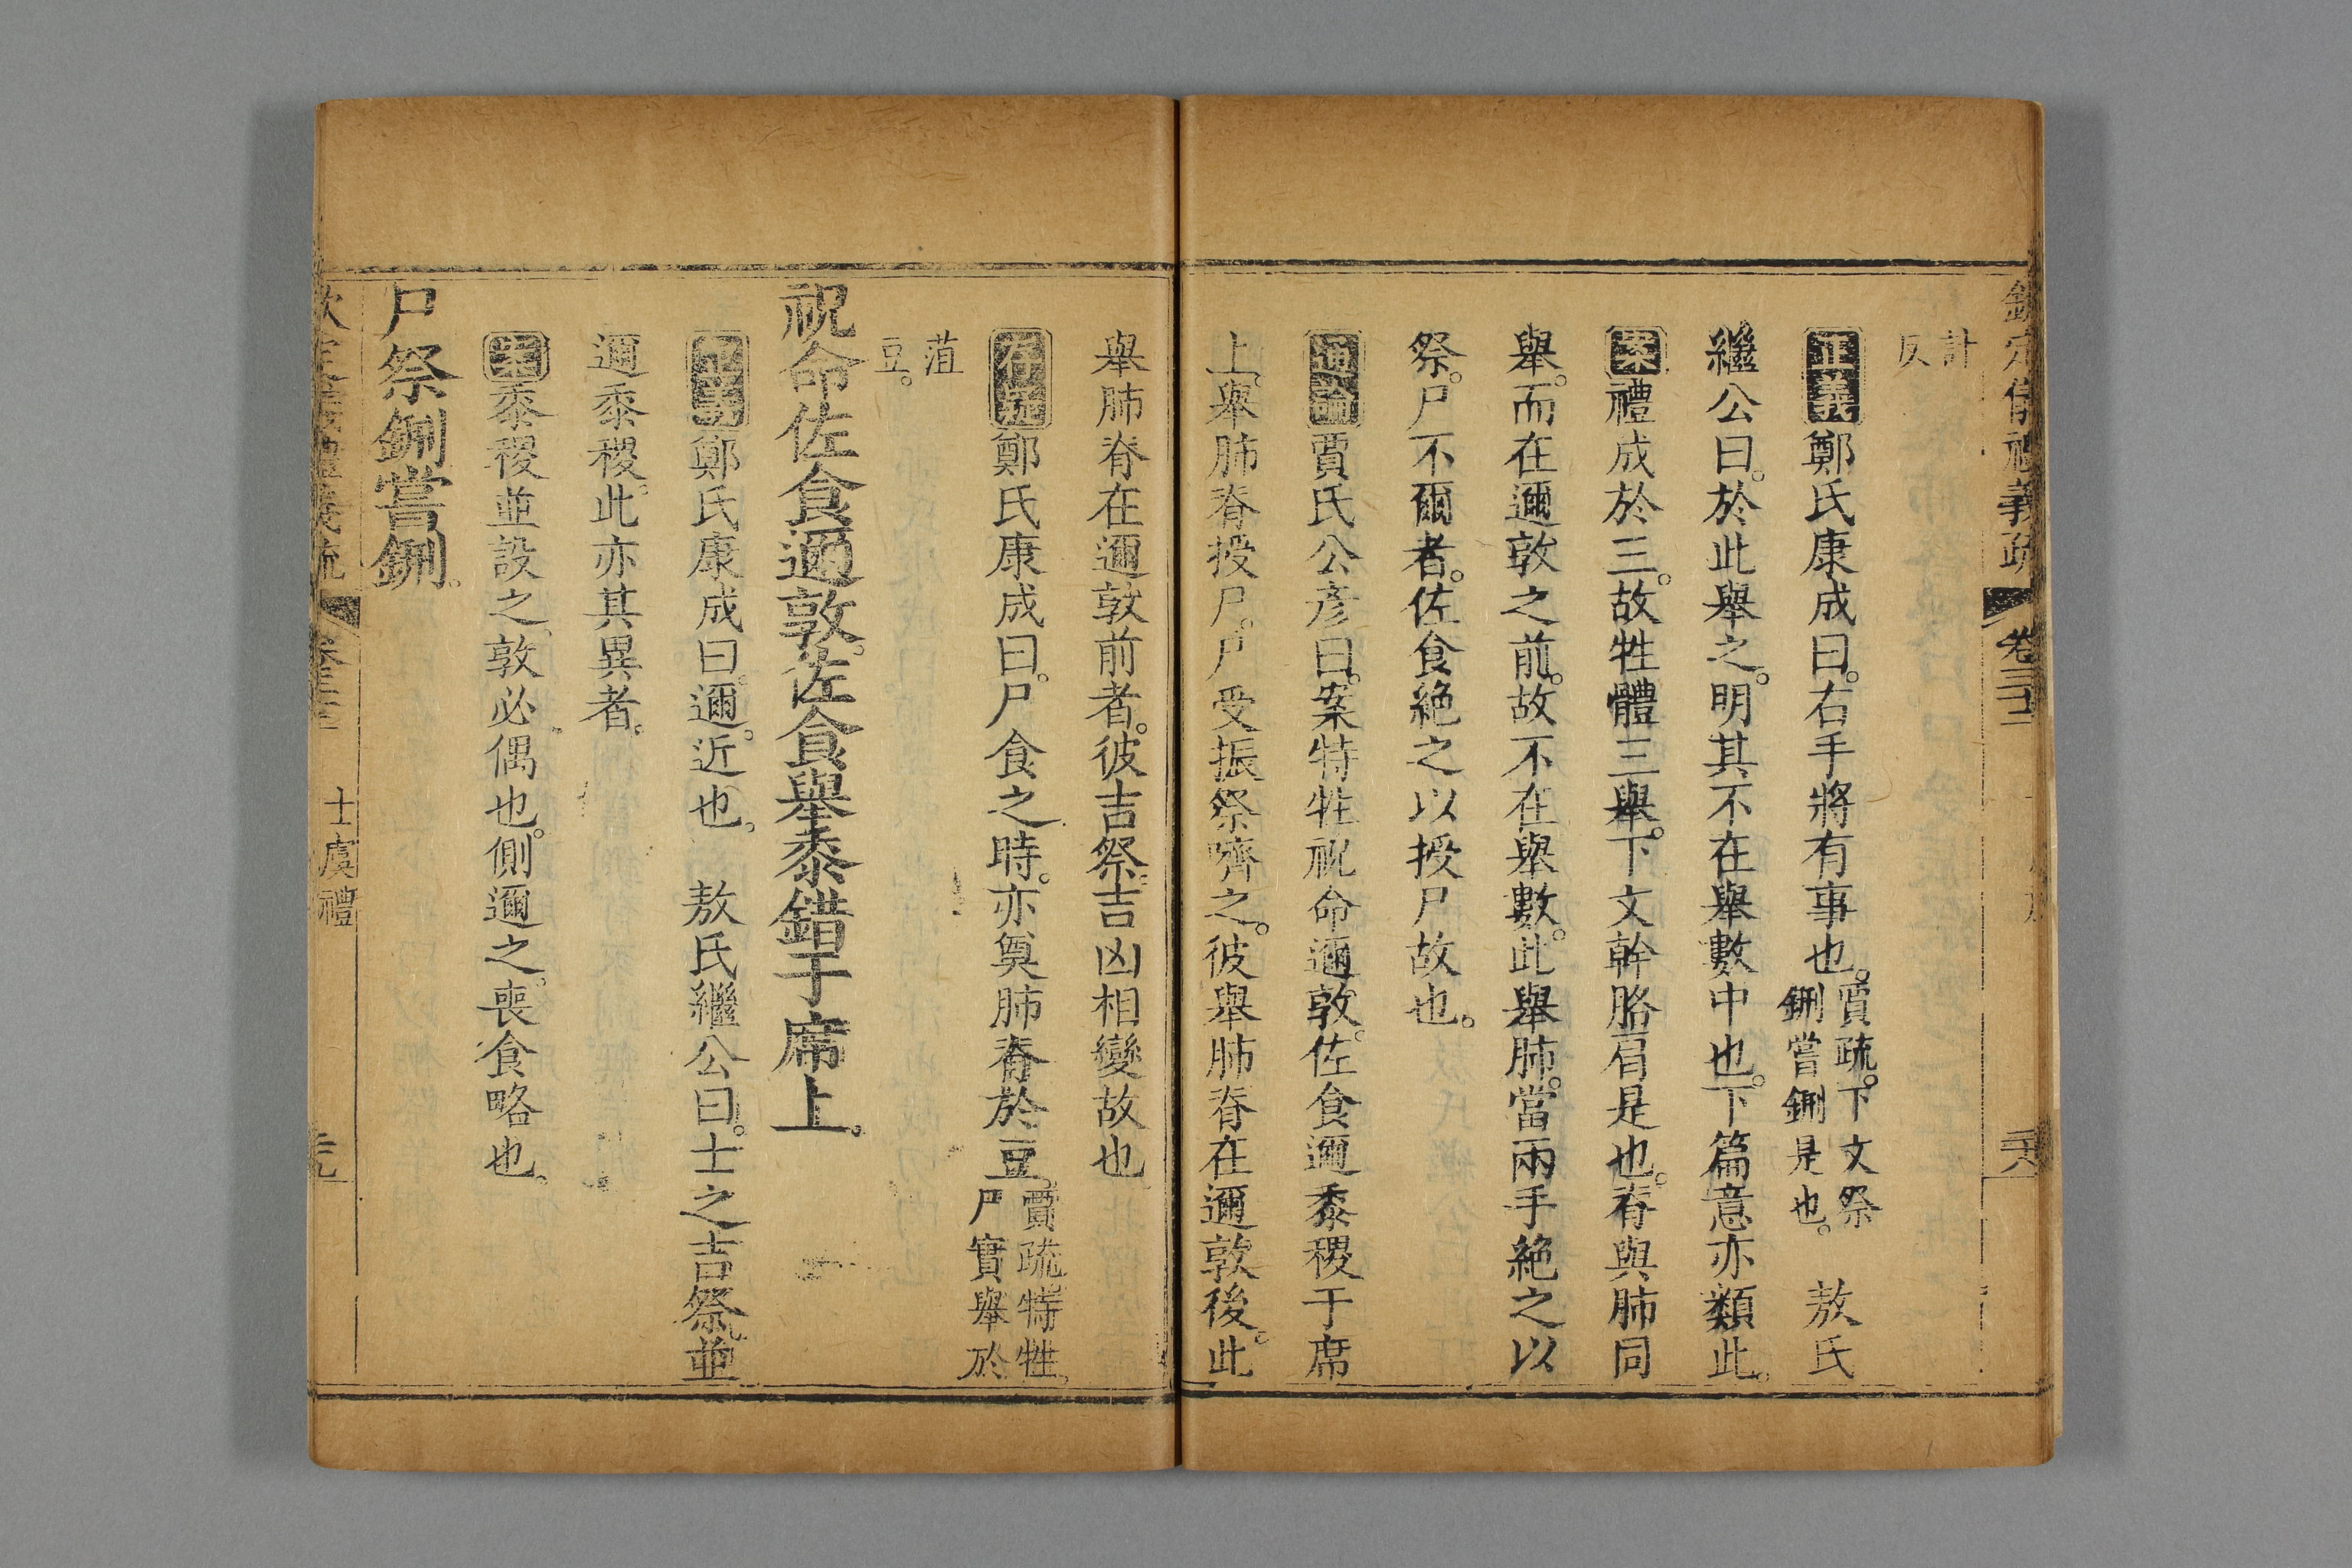 欽定儀禮義疏 卷三十三 二六
計反
正義鄭氏康成曰。右手將有事也。賈疏。下文祭鉶嘗鉶是也。 敖氏
繼公曰。於此舉之。明其不在舉數中也。下篇意亦類此。
案禮成於三。故牲體三舉。下文幹胳肩是也。脊與肺同
舉。而在邇敦之前。故不在舉數。此舉肺。當兩手絶之以
祭。尸不爾者。佐食絶之以授尸故也。
通論賈氏公彦曰。案特牲祝命邇敦。佐食邇黍稷于席
上。舉肺脊授尸。尸受振祭嚌之。彼舉肺脊在邇敦後。此
舉肺脊在邇敦前者。彼吉祭。吉凶相變故也
存疑鄭氏康成曰。尸食之時。亦奠肺脊於豆。賈疏。特牲。尸實舉於
菹豆。
祝命佐食邇敦。佐食舉黍錯于席上。
正義鄭氏康成曰。邇。近也。 敖氏繼公曰。士之吉祭並
邇黍稷。此亦其異者。
案黍稷並設之敦必偶也。側邇之。喪食略也。
尸祭鉶嘗鉶。
欽定儀禮義疏 士虞禮 元